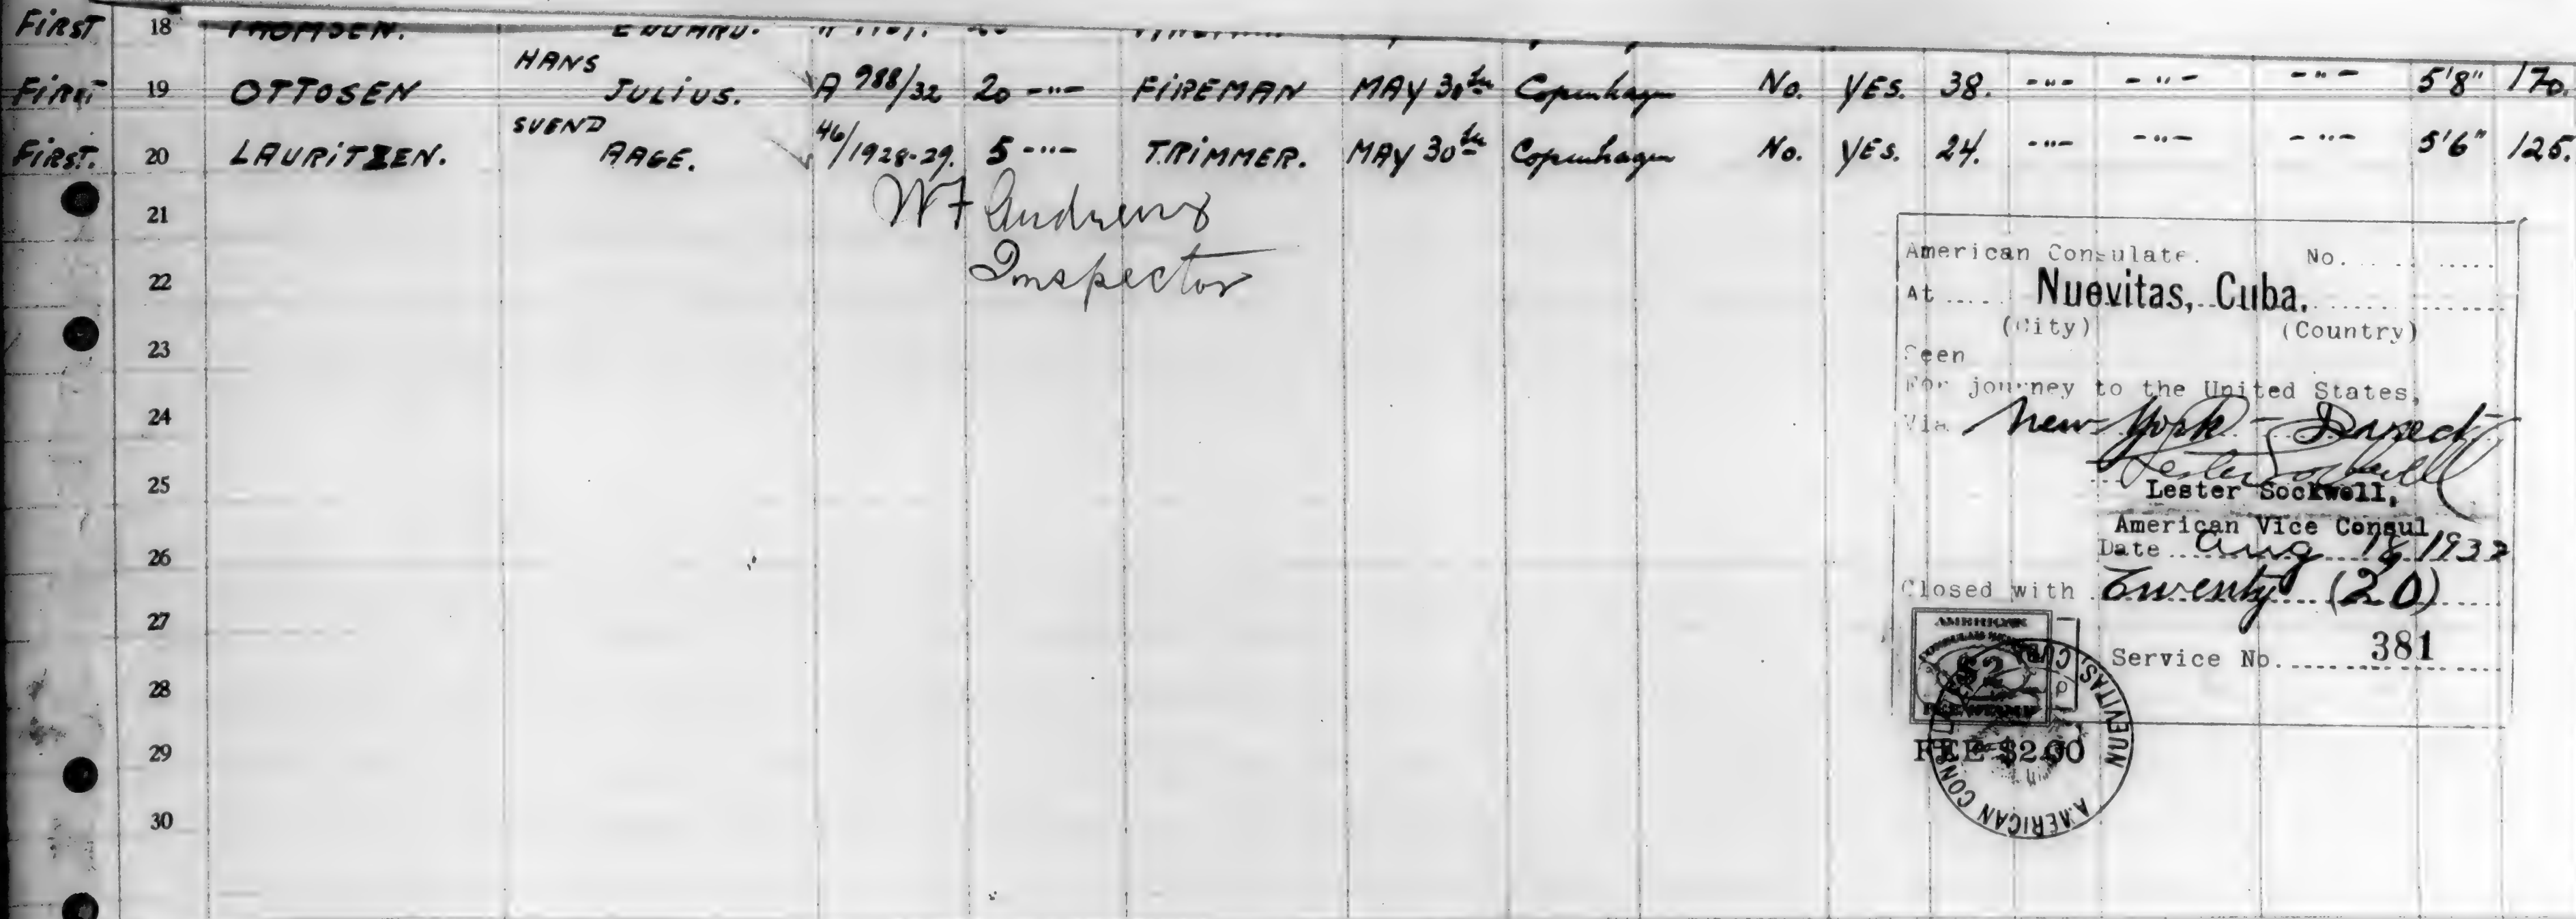 FIRST 18 THOMSEN. EDUARD.
HANS
FIRST 19 OTTOSEN JULIUS. A 988/32 20 -"- FIREMAN MAY 30th Copenhagen No. YES. 38. -"- -"- -"- 5'8" 170.
SVEND
FIRST. 20 LAURITZEN. AAGE. 46/1928-29. 5 -"- TRIMMER. MAY 30th Copenhagen No. YES. 24. -"- -"- -"- 5'6" 125.
21 WF Andrews
22 Inspector
23
24
25
26
27
28
29
30
American Consulate. No.
At Nuevitas, Cuba.
(City) (Country)
Seen
For journey to the United States,
Via New York - Direct
Lester Sockwell
Lester Sockwell,
American Vice Consul
Date Aug 18 1932
Closed with Twenty (20)
Service No. 381
AMERICAN
$2
FEE STAMP
FEE $2.00
AMERICAN CONSULATE NUEVITAS, CUBA